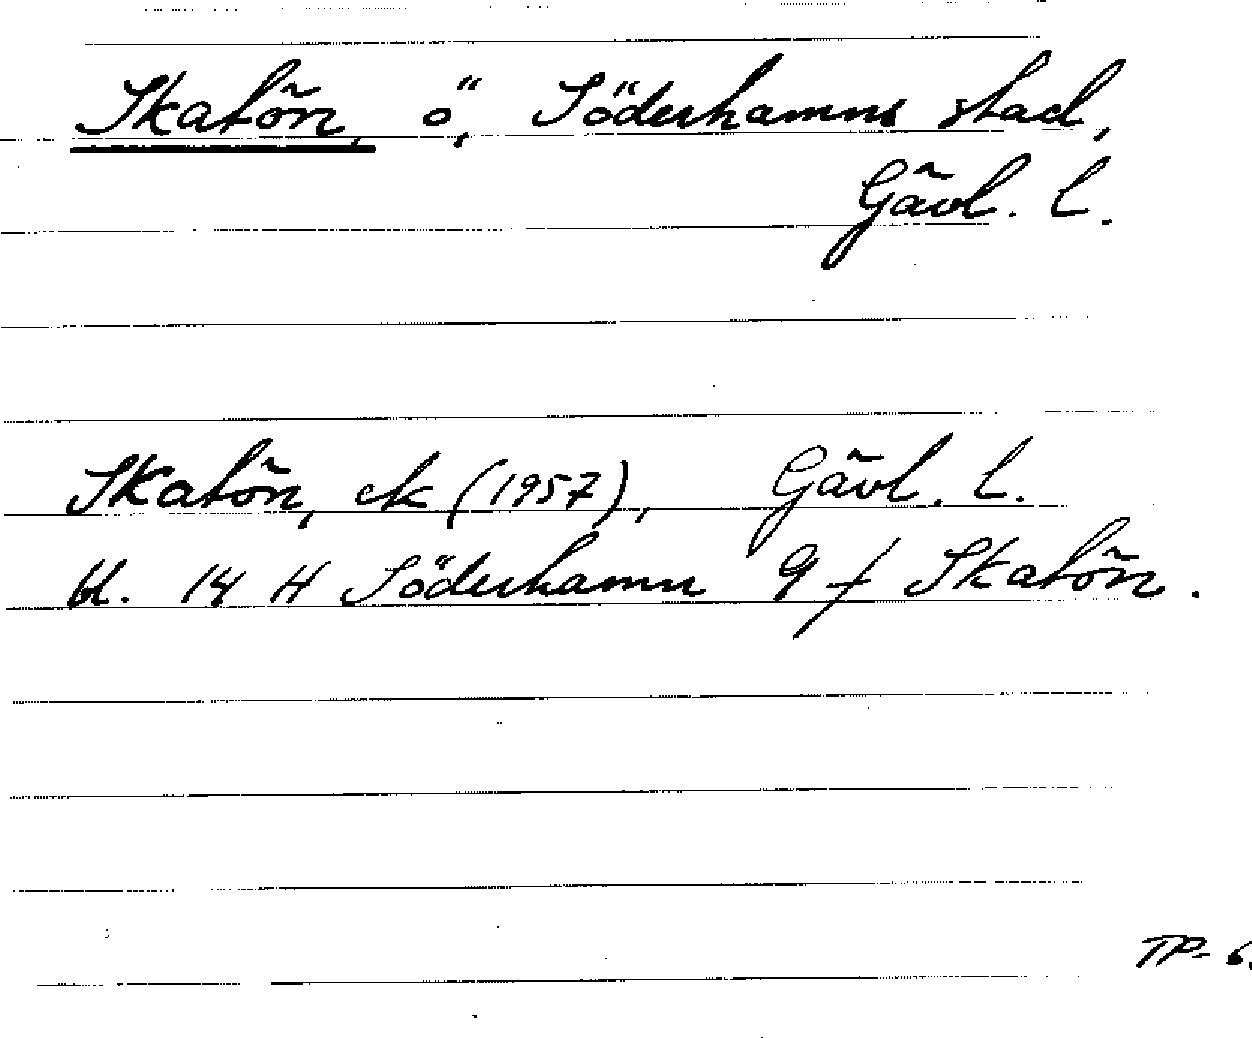 Skatön, ö, Söderhamns stad,
Gävl. l.
Skatön, ek (1957), Gävl. l.
bl. 14 H Söderhamn 9 f Skatön.
TP- 6.